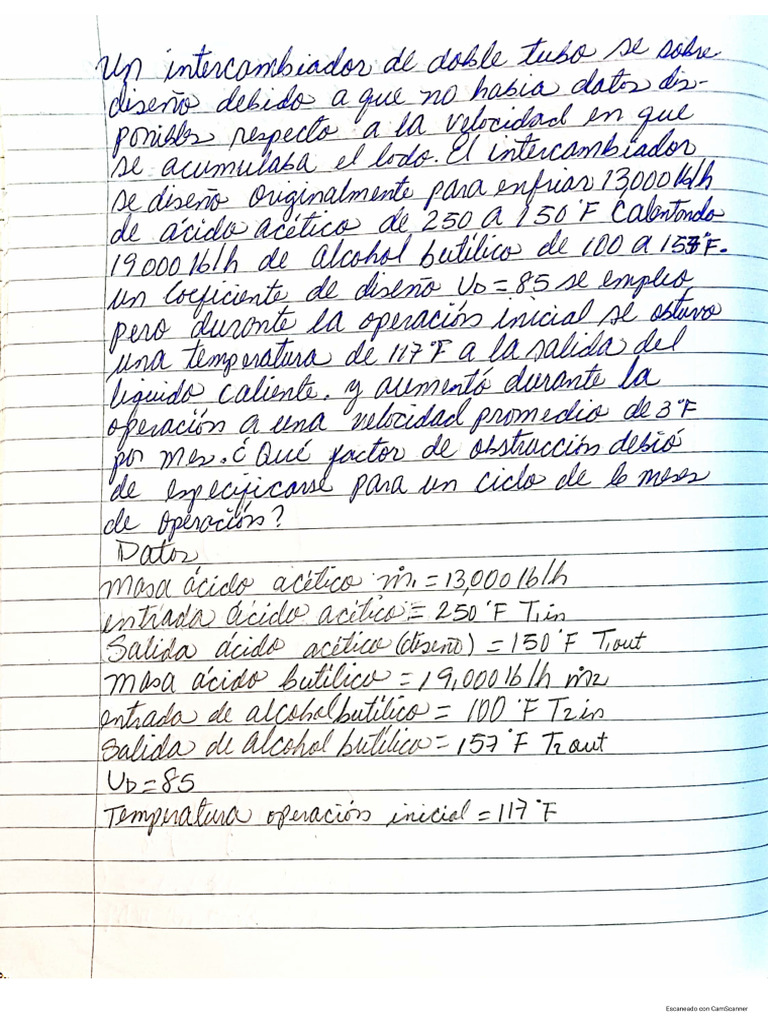 Un intercambiador de doble tubo se sobre
diseño debido a que no habia datos dis-
ponibles respecto a la velocidad en que
se acumulaba el lodo. El intercambiador
se diseño originalmente para enfriar 13,000 lb/h
de ácido acético de 250 a 150°F Calentando
19000 lb/h de alcohol butílico de 100 a 157°F.
un coeficiente de diseño UD = 85 se empleo
pero durante la operación inicial se obtuvo
una temperatura de 117°F a la salida del
liquido caliente. y aumentó durante la
operación a una velocidad promedio de 3°F
por mes. ¿Qué factor de obstrucción debió
de especificarse para un ciclo de 6 meses
de operación?
Datos
Masa ácido acético ṁ1 = 13,000 lb/h
entrada ácido acético = 250°F T1in
Salida ácido acético (diseño) = 150°F T1out
Masa ácido butílico = 19,000 lb/h ṁ2
entrada de alcohol butílico = 100°F T2in
Salida de alcohol butílico = 157°F T2out
UD = 85
Temperatura operación inicial = 117°F
Escaneado con CamScanner